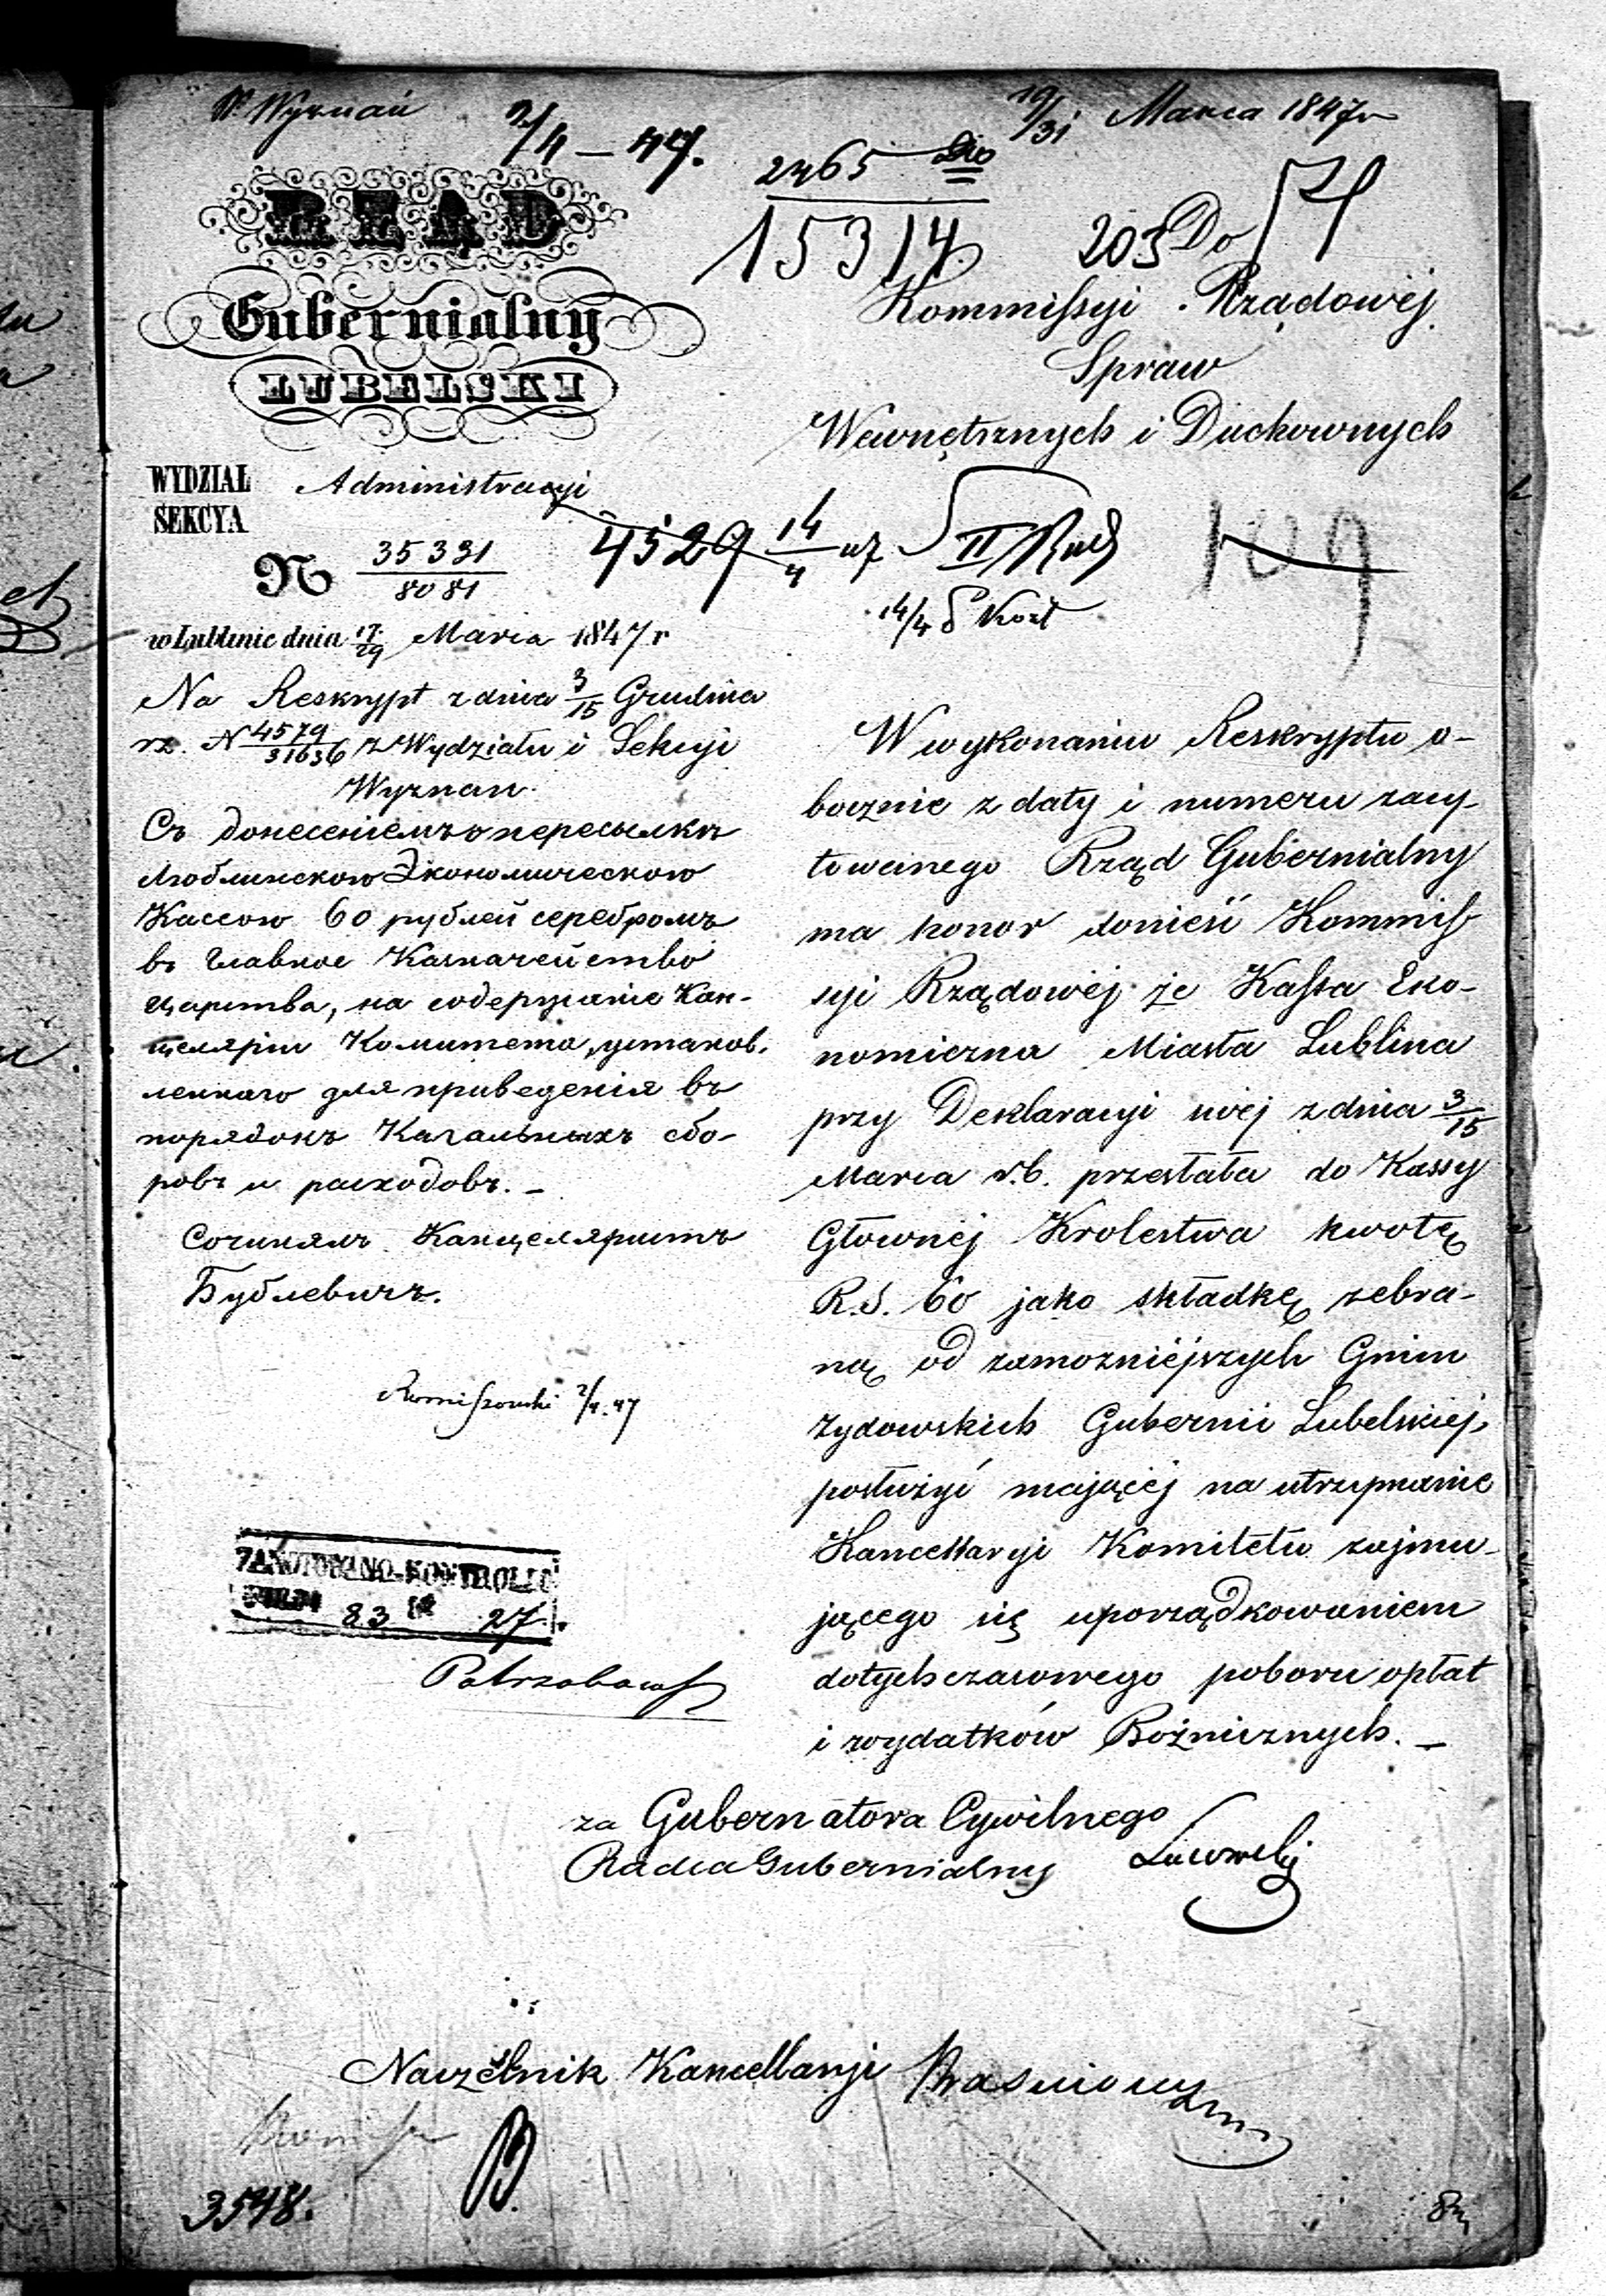 W. Wyznań
2/4 – 47.
19/31 Marca 1847 r
2465
15314
203
RZĄD
Gubernialny
LUBELSKI
Do
Kommissyi Rządowéj
Spraw
Wewnętrznych i Duchownych
WYDZIAŁ Administracyi
SEKCYA
N 35391/8081
4529 14/4 47 II
14/4
w Lublinie dnia 17/29 Marca 1847 r
Na Reskrypt z dnia 3/15 Grudnia
rz. N 4579/31636 z Wydziału i Sekcyi
Wyznan
Съ донесеніемъ о пересылкѣ
Люблинскою Экономическою
Кассою 60 рублей серебромъ
въ Главное Казначейство
Царства, на содержаніе Кан-
целяріи Комитета, установ-
леннаго для приведенія въ
порядокъ Кагальныхъ сбо-
ровъ и расходовъ. –
Сочинялъ Канцеляристъ
Бублевичъ.
2/4 47
ZANOTOWANO-KONTROLLI
83 27
W wykonaniu Reskryptu o-
bocznie z daty i numeru zacy-
towanego Rząd Gubernialny
ma honor donieść Kommis-
syi Rządowéj że Kassa Eko-
nomiczna Miasta Lublina
przy Deklaracyi swéj z dnia 3/15
Marca r.b. przesłała do Kassy
Głownéj Krolestwa kwotę
R.S. 60 jako składkę zebra-
ną od zamozniéjszych Gmin
Zydowskich Gubernii Lubelskiéj,
posłużyć mającéj na utrzymanie
Kancellaryi Komitetu zajmu-
jącego się uporządkowaniem
dotychczasowego poboru opłat
i wydatków Bożniczych. –
za Gubernatora Cywilnego
Radca Gubernialny
Naczelnik Kancellaryi
3548.